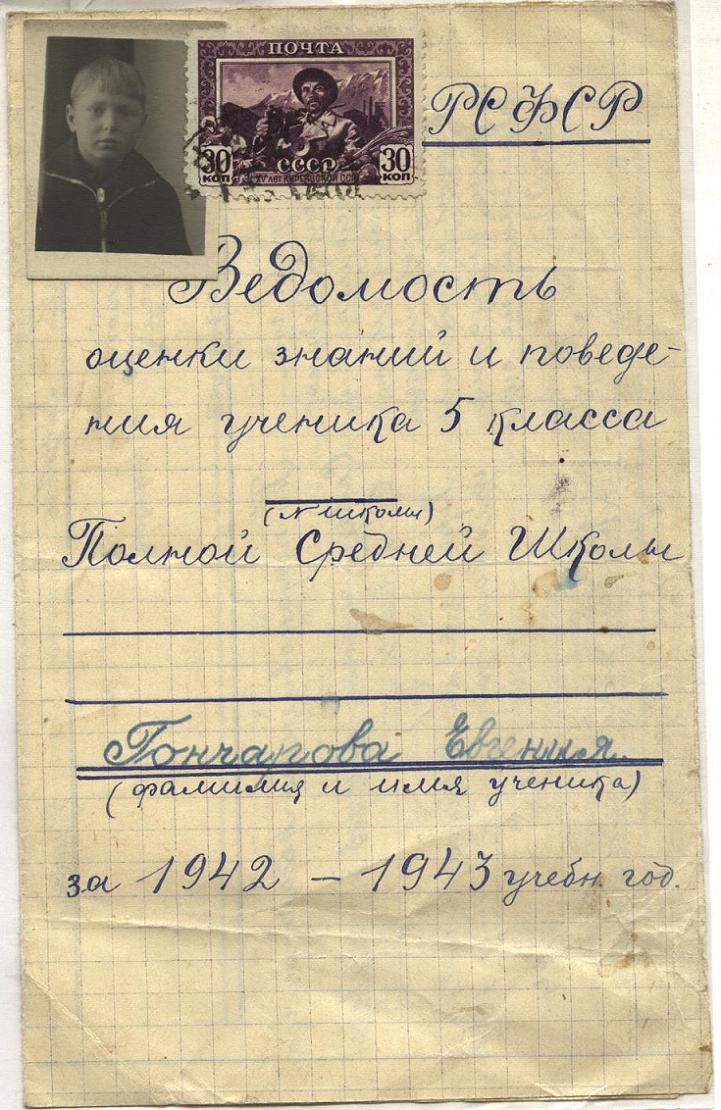 ПОЧТА
30 КОП
СССР
30 КОП
XV ЛЕТ КИРГИЗСКОЙ ССР
РСФСР
Ведомость
оценки знаний и поведе-
ния ученика 5 класса
(N школы)
Полной Средней Школы
Гончарова Евгения
(фамилия и имя ученика)
за 1942 – 1943 учебн. год.